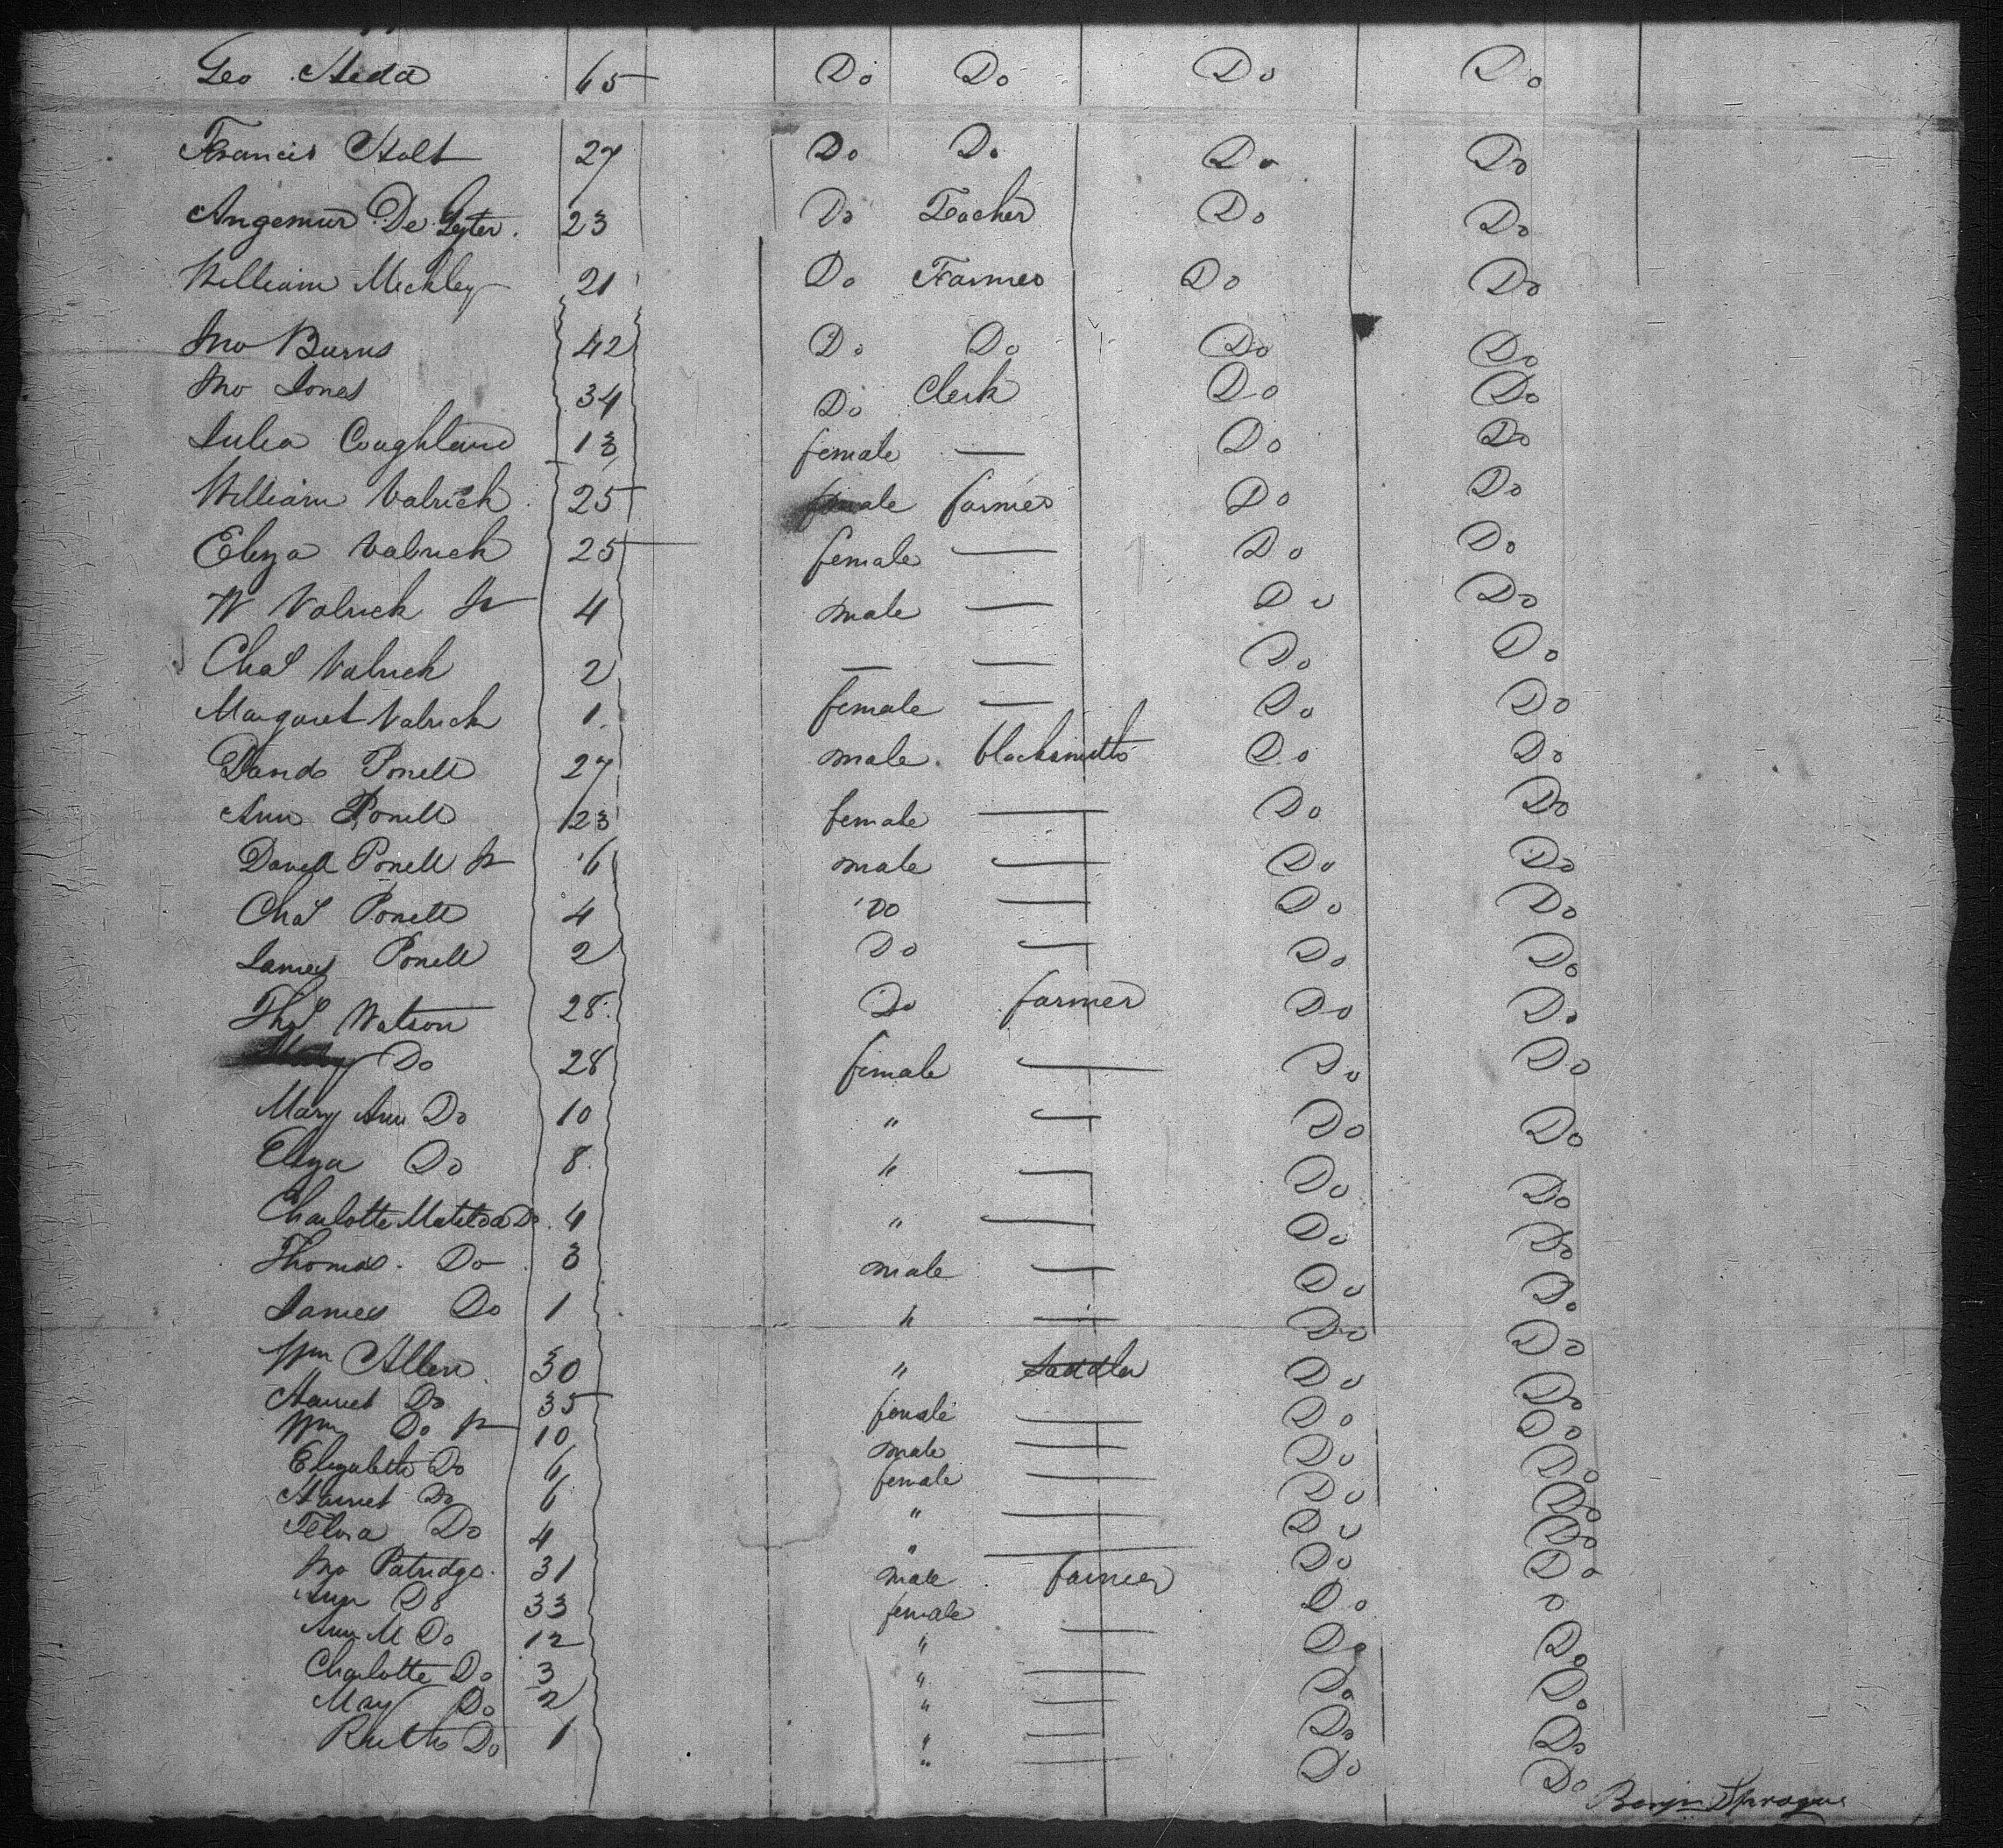 Geo Heda 65 Do Do Do Do
Francis Holt 27 Do Do Do Do
Angemur De Lyter. 23 Do Teacher Do Do
William Meckley 21 Do Farmer Do Do
Jno Burns 42 Do Do Do Do
Jno Jones 34 Do Clerk Do Do
Julia Coughland 13 female — Do Do
William Valrick 25 male farmer Do Do
Eliza Valrick 25 female — Do Do
W Valrick Jr 4 male — Do Do
Chas Valrick 2 — — Do Do
Margaret Valrick 1. female — Do Do
David Ponell 27 male. blacksmith Do Do
Ann Ponell 23 female — Do Do
David Ponell Jr 6 male — Do Do
Chas Ponell 4 Do — Do Do
James Ponell 2 Do — Do Do
Thos Watson 28. Do farmer Do Do
Do 28 female — Do Do
Mary Ann Do 10 " — Do Do
Eliza Do 8. " — Do Do
Charlotte Matilda Do. 4 " — Do Do
Thomas. Do 3 male — Do Do
James Do 1 " — Do Do
Wm Allen. 30 " Saddler Do Do
Harriet Do 35 female — Do Do
Wm Do Jr 10 male — Do Do
Elizabeth Do 6 female — Do Do
Harriet Do 6 " — Do Do
Do 4 " — Do Do
Jno Patridge. 31 male. farmer Do Do
Ann Do 33 female — Do o
Ann M Do 12 " — Do Do
Charlotte Do 3 " — Do Do
May Do 2 " — Do Do
Ruth Do 1 " — Do Do
Benjn Sprague